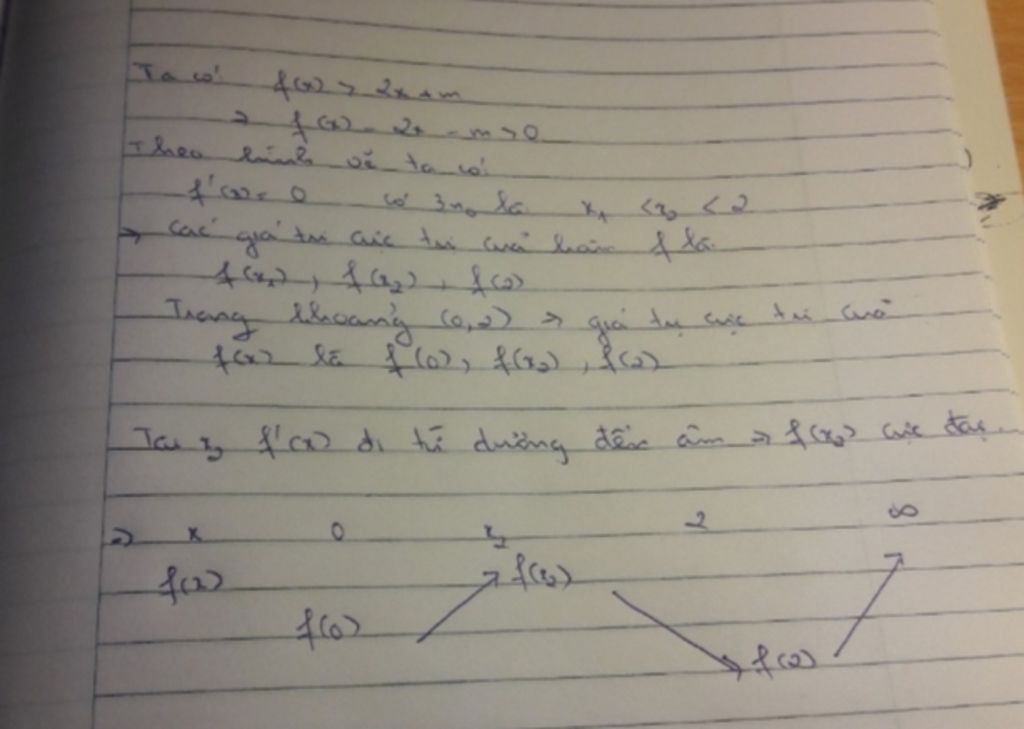 Ta có f(x) > 2x + m
→ f(x) - 2x - m > 0
Theo hình vẽ ta có
f'(x) = 0 có 3 n₀ là x₁ < x₂ < 2
→ Các giá trị cực trị của hàm f là
f(x₁), f(x₂), f(2)
Trong khoảng (0,2) → giá trị cực trị của
f(x) là f(0), f(x₂), f(2)
Tại x₂ f'(x) đi từ dương đến âm → f(x₂) cực đại.
→ x 0 x₂ 2 ∞
f(x) f(x₂)
f(0) f(2)